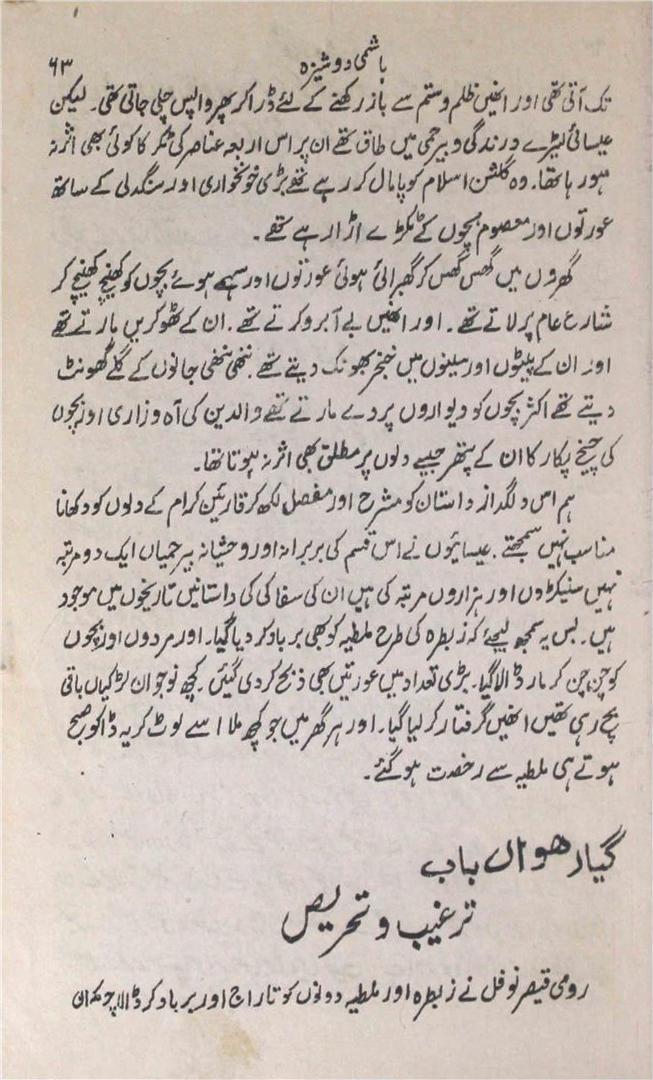 ہاشمی دوشیزہ
۶۳
تک آتی تھی اور انھیں ظلم وستم سے باز رکھنے کے لئے ڈرا کر پھر واپس چلی جاتی تھی۔ لیکن
عیسائی لٹیرے درندگی و بیرحمی میں طاق تھے ان پر اس اربعہ عناصر کی ٹکر کا کوئی بھی اثر نہ
ہورہا تھا۔ وہ گلشن اسلام کو پامال کر رہے تھے بڑی خونخواری اور سنگدلی کے ساتھ
عورتوں اور معصوم بچوں کے ٹکڑے اڑا رہے تھے۔
گھروں میں گھس گھس کر گھبرائی ہوئی عورتوں اور سہمے ہوئے بچوں کو کھینچ کھینچ کر
شارع عام پر لاتے تھے۔ اور انھیں بے آبرو کرتے تھے۔ ان کے ٹھوکریں مارتے تھے
اور ان کے پیٹوں اور سینوں میں خنجر بھونک دیتے تھے۔ ننھی ننھی جانوں کے گلے گھونٹ
دیتے تھے اکثر بچوں کو دیواروں پر دے مارتے تھے والدین کی آہ و زاری اور بچوں
کی چیخ پکار کا ان کے پتھر جیسے دلوں پر مطلق بھی اثر نہ ہوتا تھا۔
ہم اس دلگداز داستان کو مشرح اور مفصل لکھ کر قارئین کرام کے دلوں کو دکھانا
مناسب نہیں سمجھتے۔ عیسائیوں نے اس قسم کی بربرانہ اور وحشیانہ بیرحمیاں ایک دو مرتبہ
نہیں سینکڑوں اور ہزاروں مرتبہ کی ہیں ان کی سفاکی کی داستانیں تاریخوں میں موجود
ہیں۔ بس یہ سمجھ لیجئے کہ زبطرہ کی طرح ملطیہ کو بھی برباد کر دیا گیا۔ اور مردوں اور بچوں
کو چن چن کر مار ڈالا گیا۔ بڑی تعداد میں عورتیں بھی ذبح کر دی گئیں۔ کچھ نوجوان لڑکیاں باقی
بچ رہی تھیں انھیں گرفتار کر لیا گیا۔ اور ہر گھر میں جو کچھ ملا اسے لوٹ کر یہ ڈاکو صبح
ہوتے ہی ملطیہ سے رخصت ہو گئے۔
گیارھواں باب
ترغیب و تحریص
رومی قیصر نوفل نے زبطرہ اور ملطیہ دونوں کو تاراج اور برباد کر ڈالا چونکہ ان